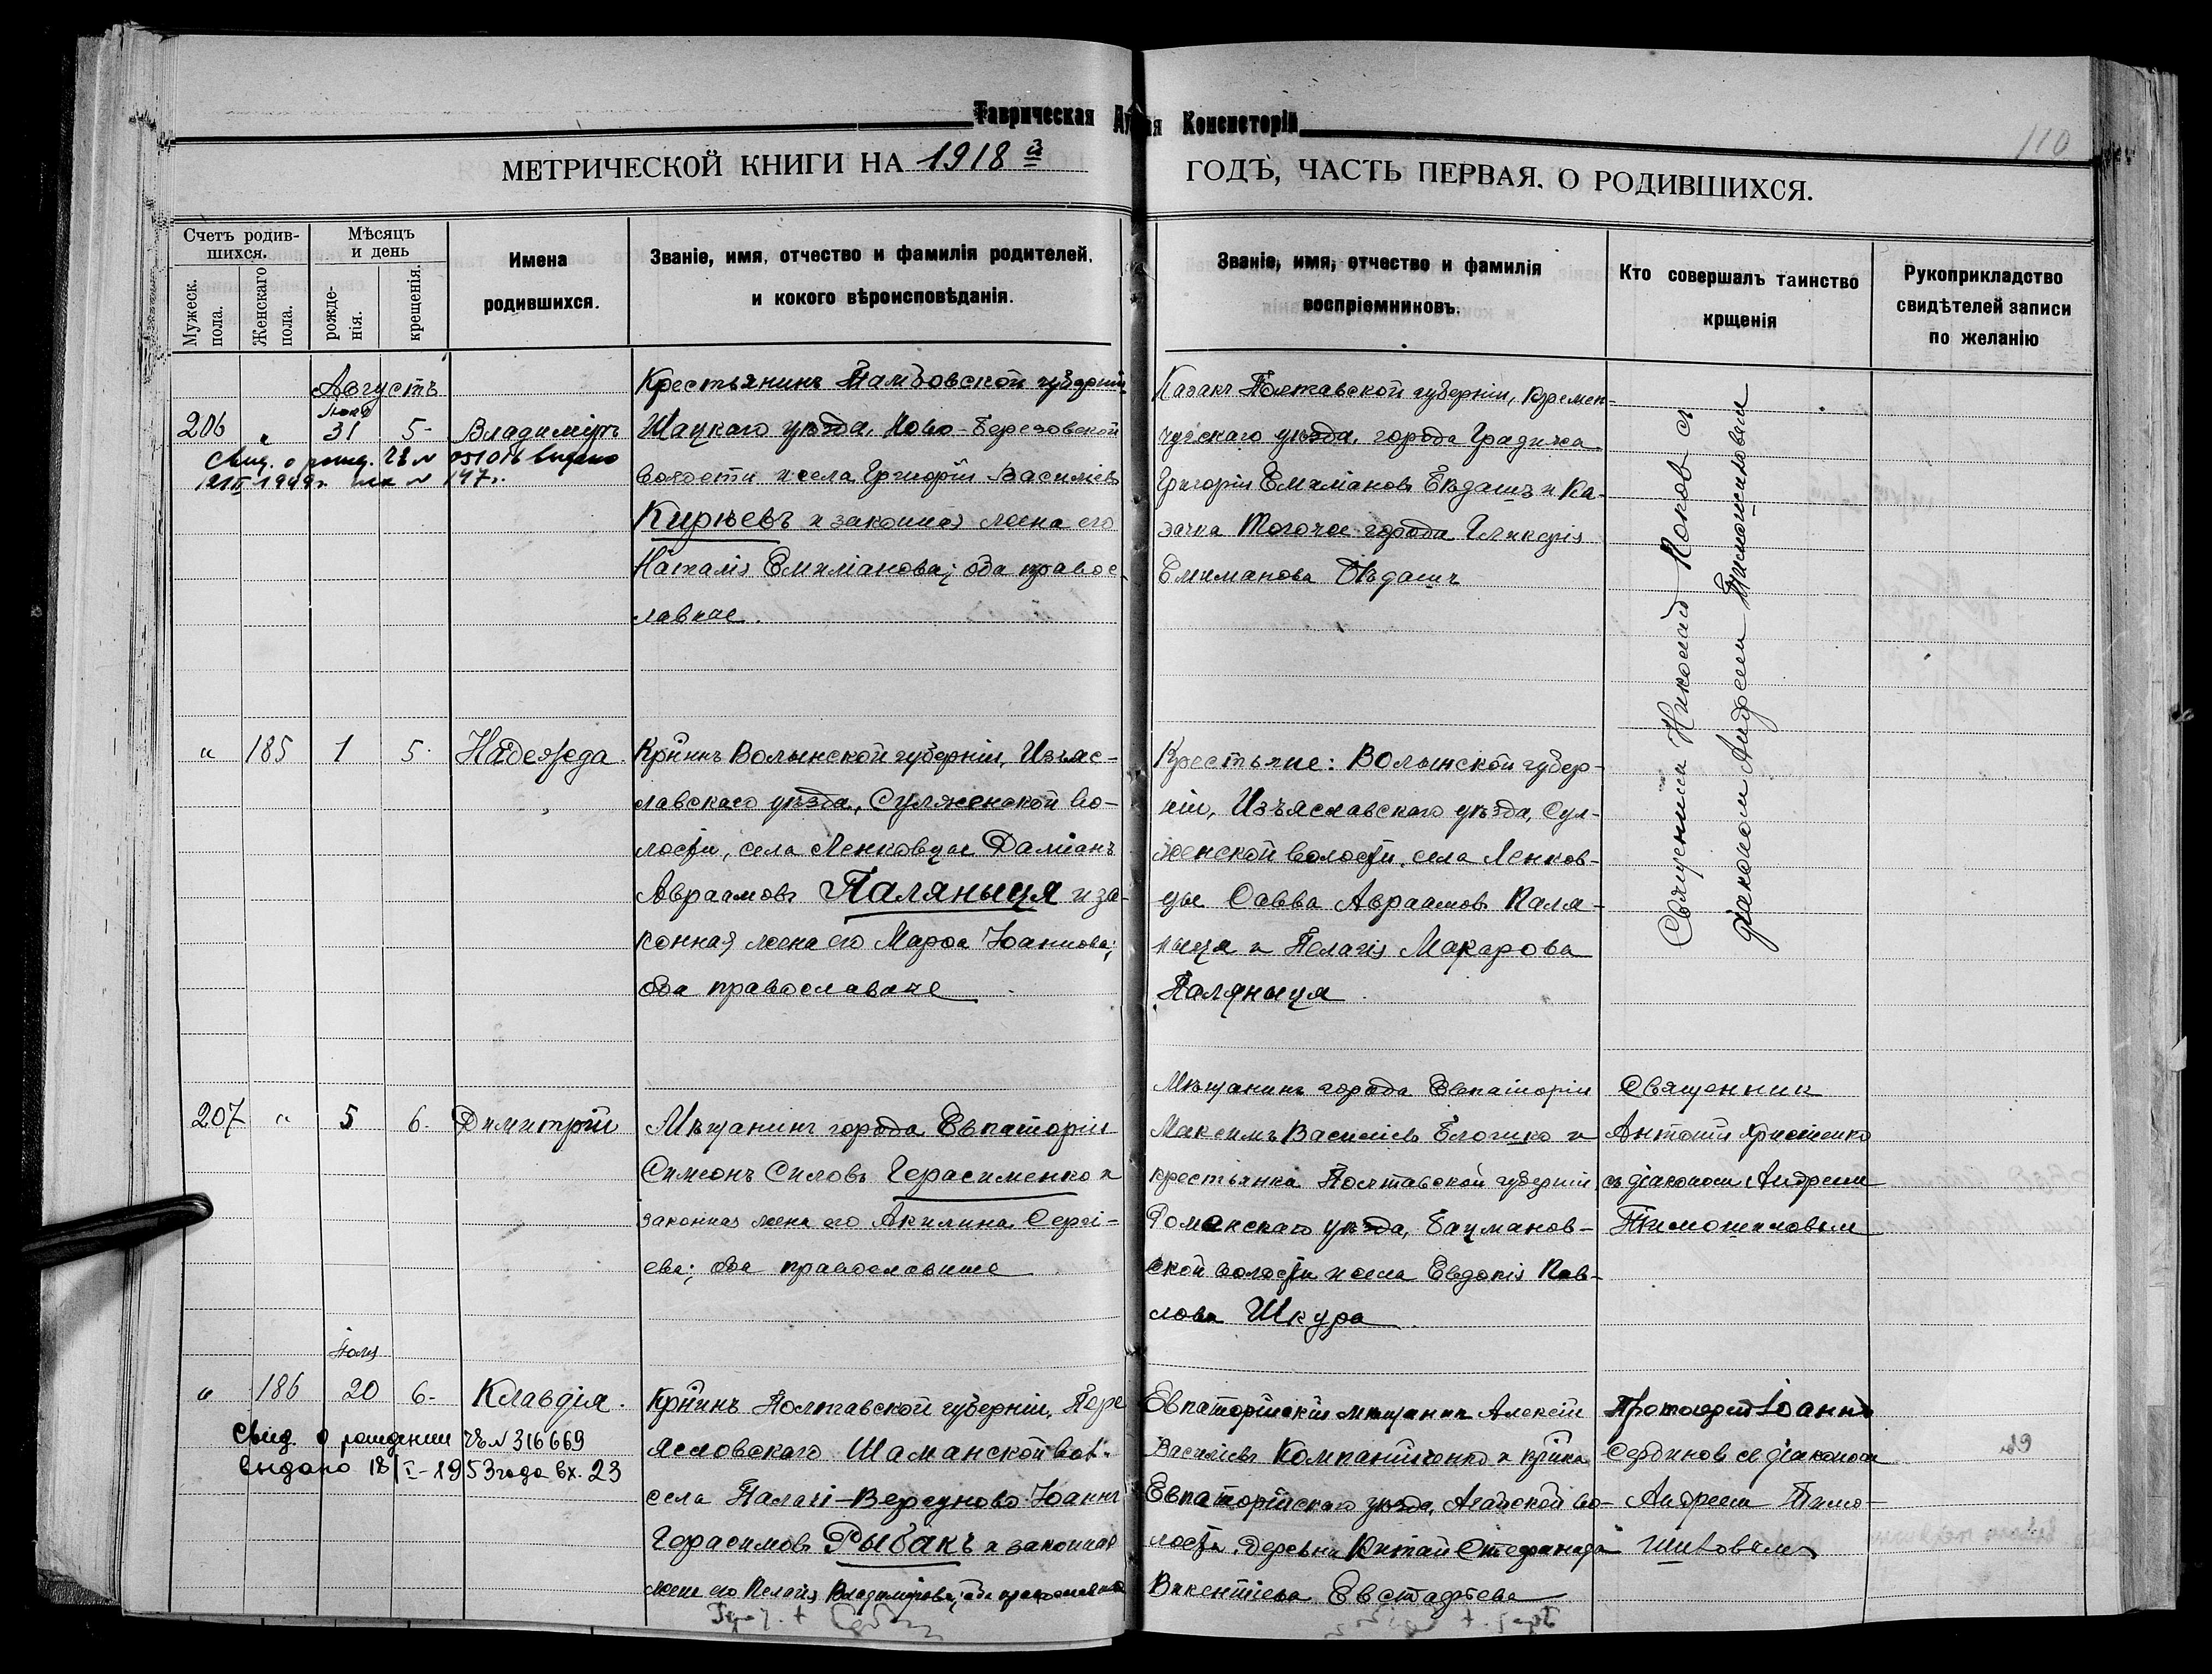 Таврическая
Консисторій
110
МЕТРИЧЕСКОЙ КНИГИ НА 1918й ГОДЪ, ЧАСТЬ ПЕРВАЯ. О РОДИВШИХСЯ.
Счетъ родив-
шихся.
Мужеск.
пола.
Женскаго
пола.
Мѣсяцъ
и день
рожде-
нія.
крещенія.
Имена
родившихся.
Званіе, имя, отчество и фамилія родителей,
и кокого вѣроисповѣданія.
Званіе, имя, отчество и фамилія
воспріемниковъ.
Кто совершалъ таинство
крщенія
Рукоприкладство
свидѣтелей записи
по желанію
Августъ
206 " 31 5 Владиміръ
Свид. о рожд.
147
Крестьянинъ Тамбовской губерніи
Шацкаго уѣзда, Ново-Березовской
волости и села Григорій Василіевъ
Кирѣевъ и законная жена его
Наталія Емиліанова; оба правос-
лавные.
Казакъ Полтавской губерніи, Кремен-
чугскаго уѣзда, города Градижска
Григорій Емиліановъ Бѣдашъ и Ка-
зачка того же города Гликерія
Емилианова Бѣдашъ
Священник Николай Попов съ
діаконом Андреем Тимошиловым
" 185 1 5 Надежда.
Кр-инъ Волынской губерніи, Изъяс-
лавскаго уѣзда, Сулженской во-
лости, села Ленковцы Даміанъ
Авраамовъ Паляныця и за-
конная жена его Марѳа Іоаннова;
оба православные
Крестьяне: Волынской губер-
ніи, Изъяславскаго уѣзда, Сул-
женской волости, села Ленков-
цы Савва Авраамовъ Паля-
ныця и Пелагія Макарова
Паляныця
207 " 5 6. Димитрій
Мѣщанинъ города Евпаторіи
Симеонъ Силовъ Герасименко и
законная жена его Акилина Сергі-
ева; оба православные
Мѣщанинъ города Евпаторіи
Максимъ Василіевъ и
крестьянка Полтавской губерніи
Роменскаго уѣзда, Бацманов-
ской волости и села Евдокія Пав-
лова Шкура
Священник
Антоній Христенко
съ діаконом Андреем
Тимошиловым
Іюля
" 186 20 6. Клавдія.
Свид. о рождении ЧѢ N 316669
выдано 18/I-1953 года вх. 23
Кр-инъ Полтавской губерніи, Пере
яславскаго вол.
села Іоаннъ
Герасимовъ Рыбакъ и законная
жена его Пелагія Владимірова; оба православные
Евпаторійскій мѣщанинъ Алексій
Василіевъ Компанійченко и кр-нка
Евпаторійскаго уѣзда, Агайской во-
лости, деревни Китай Стефанида
Викентіева Евстафіева
Протоіерей Іоаннъ
Сербинов съ діаконом
Андреем Тимо-
шиловым